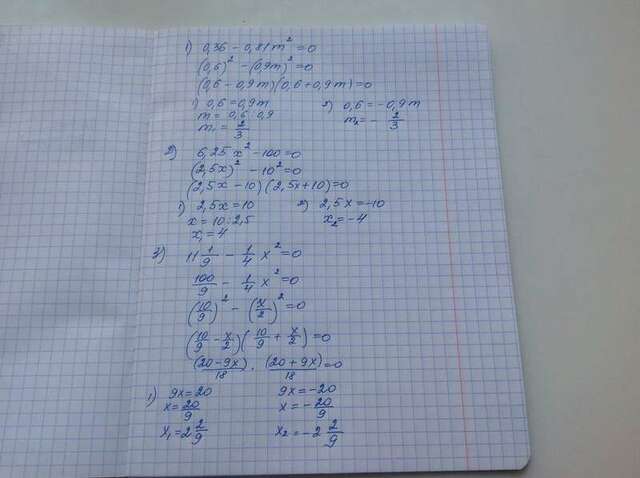 1) 0,36 - 0,81m² = 0
(0,6)² - (0,9m)² = 0
(0,6 - 0,9m)(0,6 + 0,9m) = 0
1) 0,6 = 0,9m 2) 0,6 = -0,9m
m = 0,6 : 0,9 m₂ = - 2/3
m₁ = 2/3
2) 6,25x² - 100 = 0
(2,5x)² - 10² = 0
(2,5x - 10)(2,5x + 10) = 0
1) 2,5x = 10 2) 2,5x = -10
x = 10 : 2,5 x₂ = -4
x₁ = 4
3) 11 1/9 - 1/4 x² = 0
100/9 - 1/4 x² = 0
(10/9)² - (x/2)² = 0
(10/9 - x/2)(10/9 + x/2) = 0
(20 - 9x)/18 · (20 + 9x)/18 = 0
1) 9x = 20 9x = -20
x = 20/9 x = - 20/9
x₁ = 2 2/9 x₂ = -2 2/9